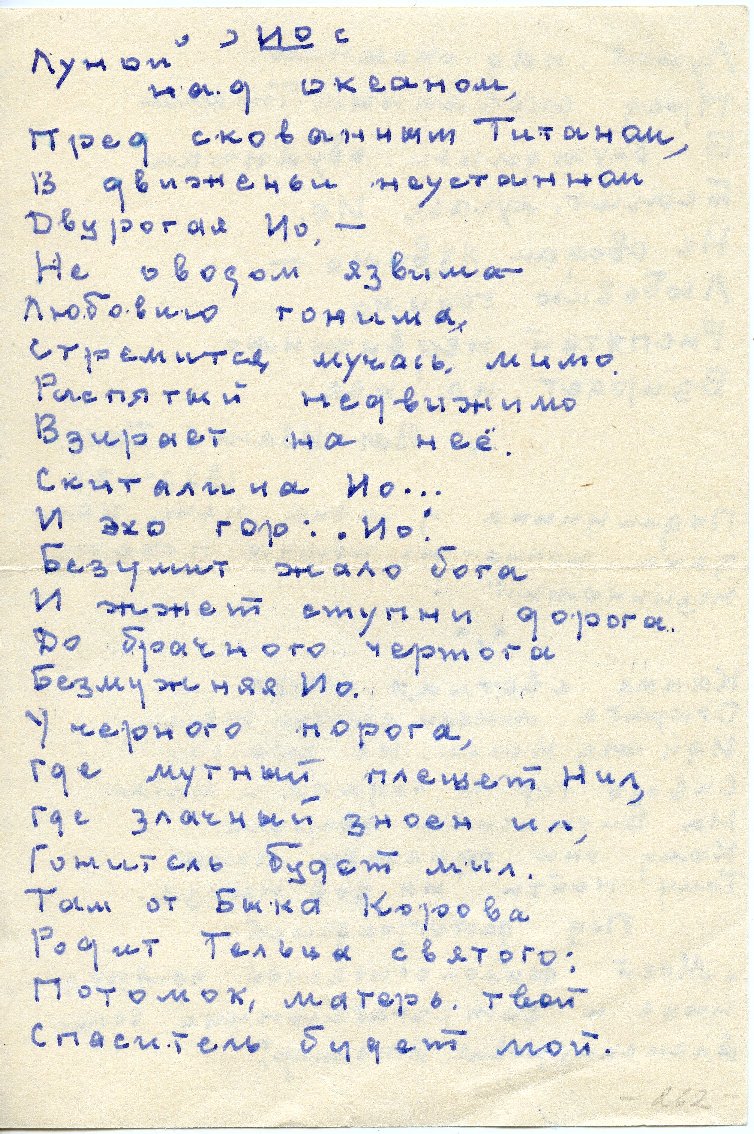 Ио с
Луной
над океаном,
Пред скованным Титаном,
В движеньи неустанном
Двурогая Ио, —
Не оводом язвима
Любовию гонима,
Стремится, мучась, мимо.
Распятый недвижимо
Взирает на неё.
Скиталица Ио...
И эхо гор: . Ио!
Безумит жало бога
И жжет ступни дорога.
До брачного чертога
Безмужняя Ио.
У черного порога,
где мутный плещет Нил,
где злачный зноен ил,
Гонитель будет мил.
Там от Быка Корова
Родит Тельца святого:
Потомок, матерь. твой
Спаситель будет мой.
- 262 -